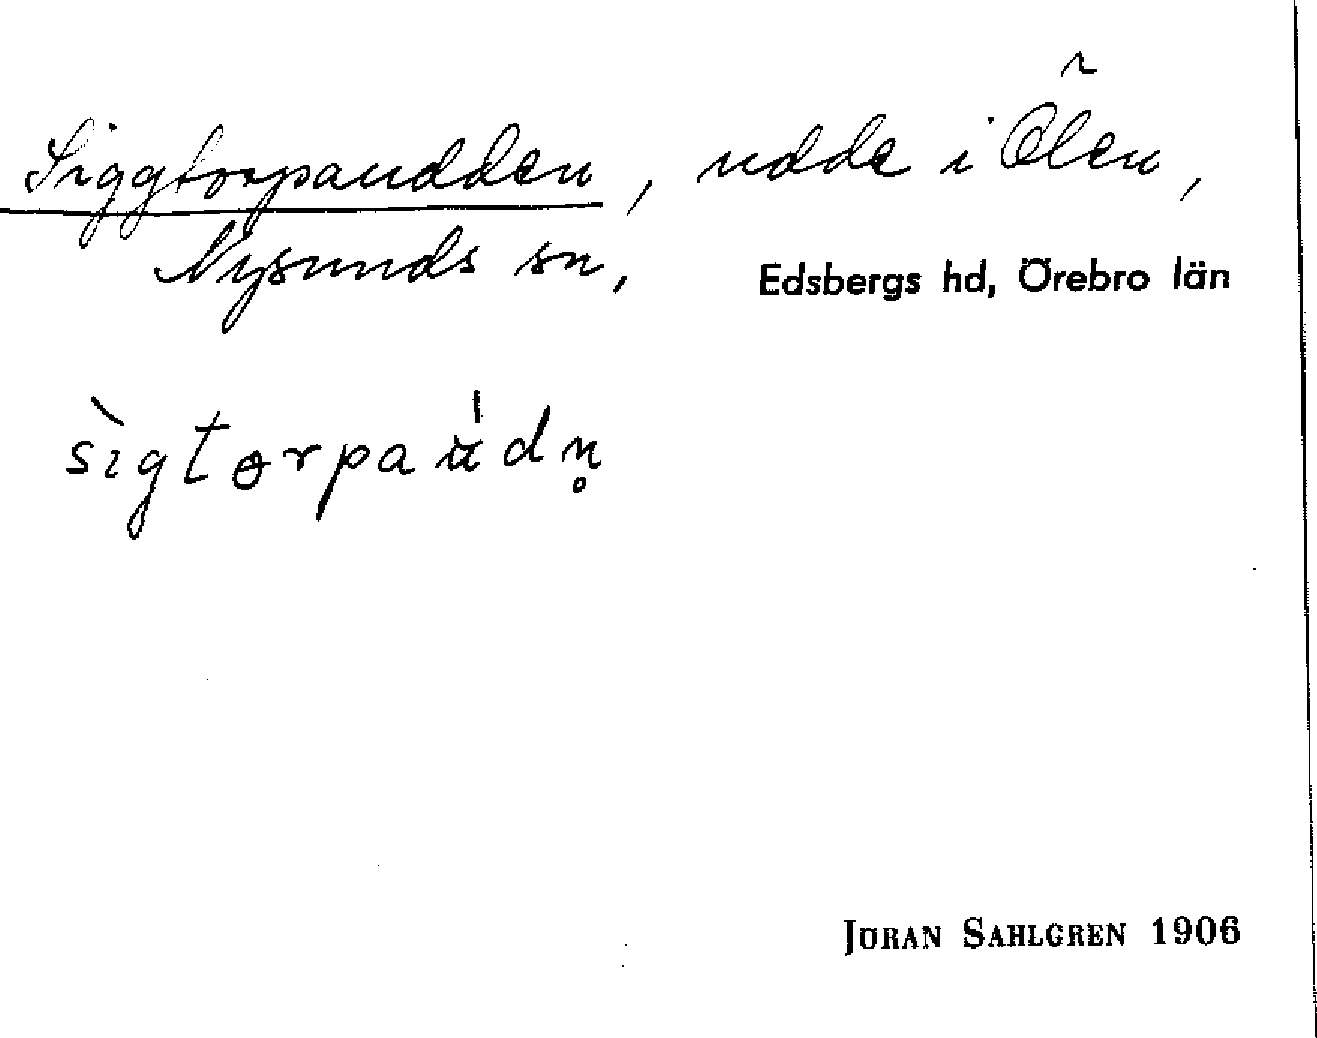 Siggtorpaudden, udde i Ölen,
Nysunds sn, Edsbergs hd, Örebro län
sìgtɵrpau̍dn̥
JÖRAN SAHLGREN 1906